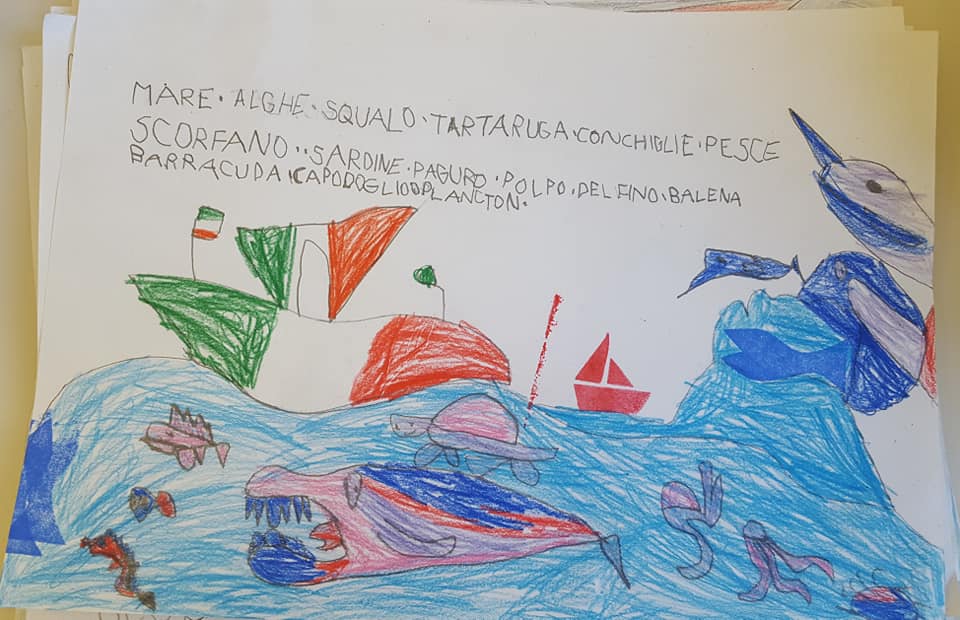 MARE · ALGHE · SQUALO · TARTARUGA · CONCHIGLIE · PESCE
SCORFANO · · SARDINE · PAGURO · POLPO · DELFINO · BALENA
BARRACUDA · CAPODOGLIO PLANCTON ·